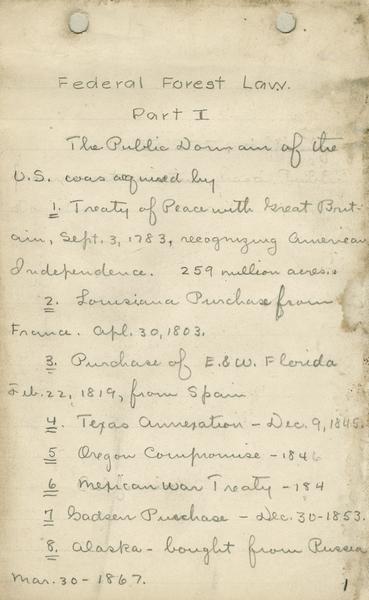 Federal Forest Law.
Part I
The Public Domain of the
U.S. was acquired by
1. Treaty of Peace with Great Brit-
ain, Sept. 3, 1783, recognizing American
Independence. 259 million acres.
2. Louisiana Purchase from
France. Apl. 30, 1803.
3. Purchase of E. & W. Florida
Feb. 22, 1819, from Spain
4. Texas Annexation - Dec. 9, 1845.
5 Oregon Compromise - 1846
6 Mexican War Treaty - 184
7 Gadsen Purchase - Dec. 30 - 1853.
8. Alaska - bought from Russia
Mar. 30 - 1867.
1